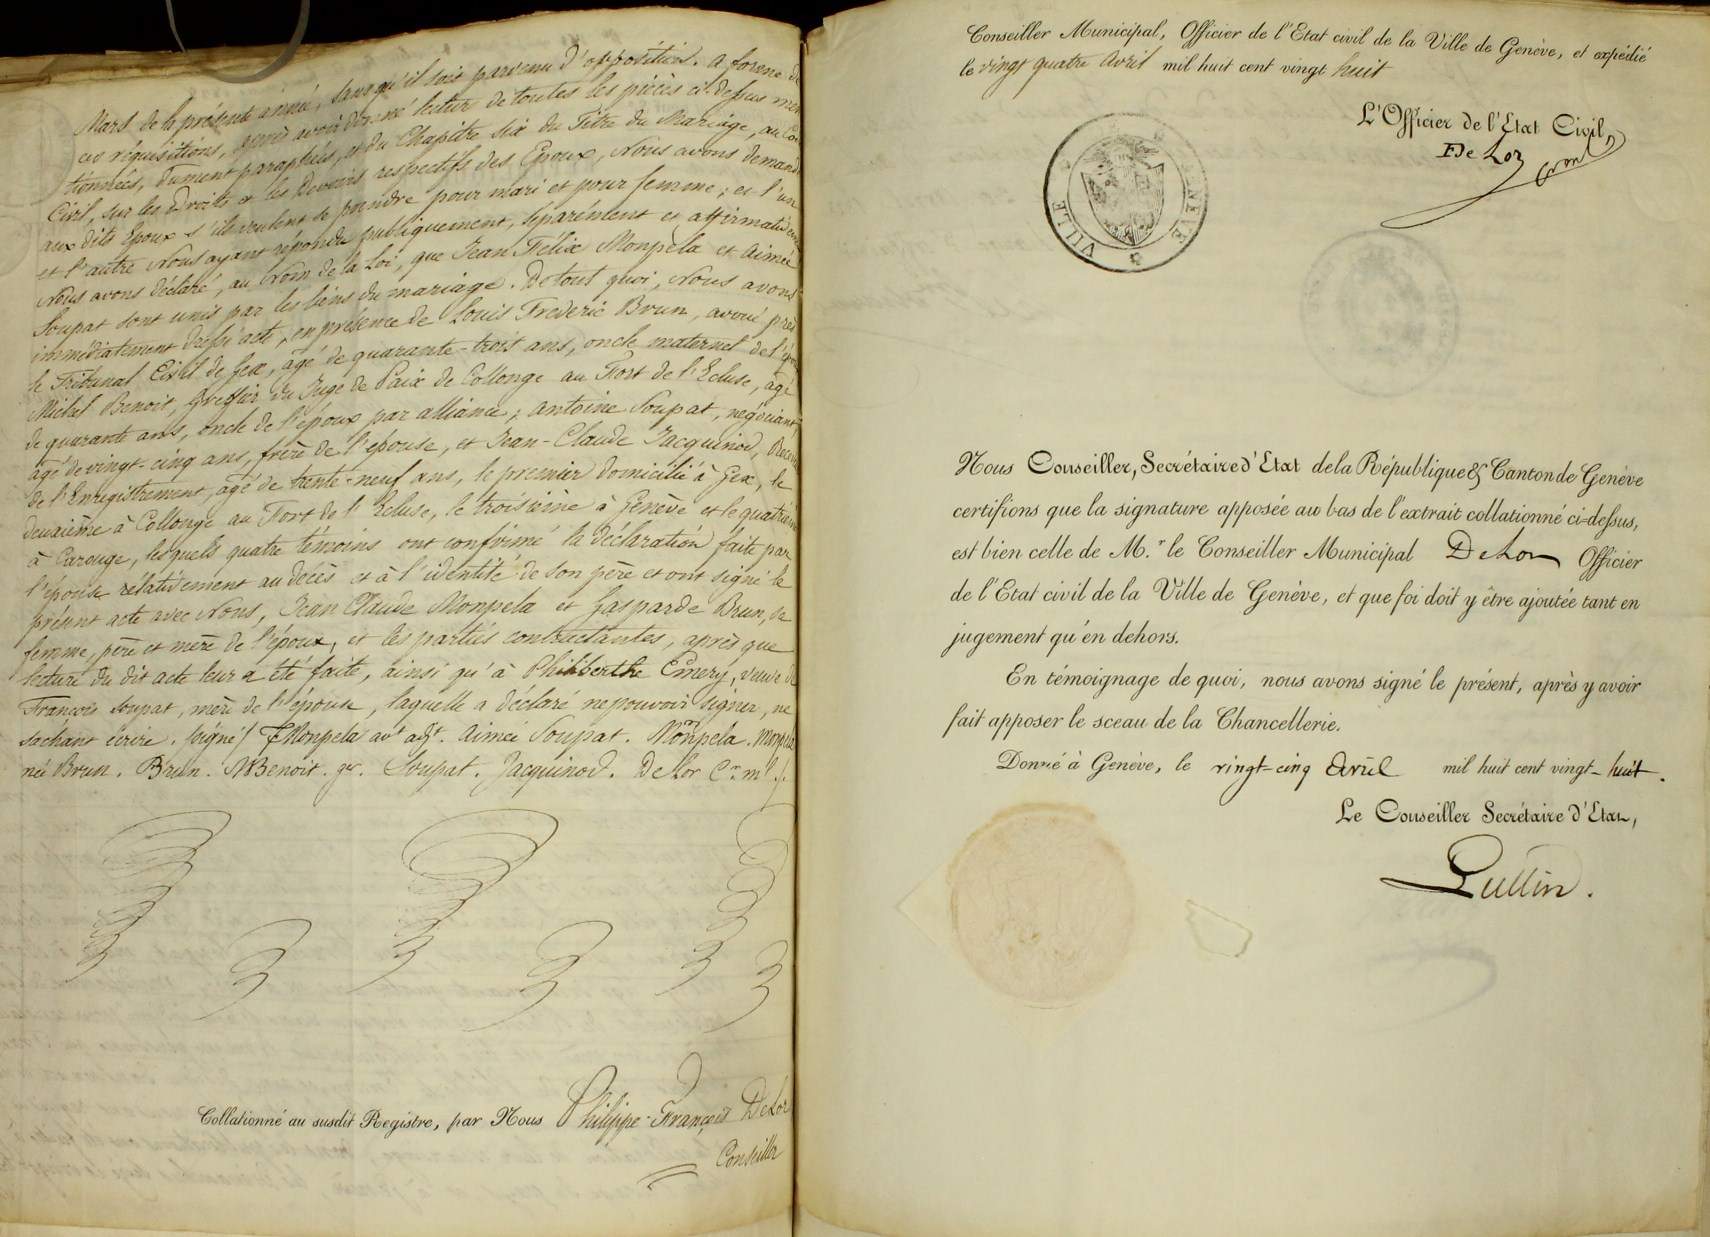 Mars de la présente année, sans qu'il soit parvenu d'opposition. a forme de
ces réquisitions, après avoir donné lecture de toutes les pièces ci-dessus men
tionnées, dument paraphées, et du Chapitre six du Titre du Mariage, au Code
Civil, sur les Droits et les Devoirs respectifs des Epoux, Nous avons demandé
aux dits Epoux s'ils veulent se prendre pour mari et pour femme ; et l'un
et l'autre Nous ayant répondu publiquement, séparément et affirmativement
Nous avons déclaré, au Nom de la Loi, que Jean Félix Monpela et Aimée
Soupat sont unis par les liens du mariage. De tout quoi, Nous avons
immédiatement dressé acte, en présence de Louis Frederic Brun, avoué près
le Tribunal Civil de Gex, âgé de quarante-trois ans, oncle maternel de l'époux
Michel Benoit, Greffier du Juge de Paix de Collonge au Fort de l'Ecluse, âgé
de quarante ans, oncle de l'époux par alliance ; Antoine Soupat, négociant,
âgé de vingt-cinq ans, frère de l'épouse, et Jean-Claude Jacquinod,
de l'Enregistrement, âgé de trente-neuf ans, le premier domicilié à Gex, le
deuxième à Collonge au Fort de l'Ecluse, le troisième à Genève et le quatrième
à Carouge, lesquels quatre témoins ont confirmé la déclaration faite par
l'épouse rélativement au décès et à l'identité de son père et ont signé le
présent acte avec Nous, Jean Claude Monpela et Gasparde Brun, sa
femme, père et mère de l'époux, et les parties contractantes, après que
lecture du dit acte leur a été faite, ainsi qu'à Philiberthe Emery, veuve de
François Soupat, mère de l'épouse, laquelle a déclaré ne pouvoir signer, ne
sachant écrire. (signé) Monpela avt adjt. Aimée Soupat. Monpela. Monpela
née Brun. Brun. MBenoit. gr. Soupat. Jacquinod. DeLor Cr. ml.
Collationné au susdit Registre, par Nous Philippe-François DeLor
Conseiller
Conseiller Municipal, Officier de l'Etat civil de la Ville de Genève, et expédié
le vingt quatre Avril mil huit cent vingt huit
L'Officier de l'Etat Civil,
DeLor
VILLE GENEVE
Nous Conseiller, Secrétaire d'Etat de la République & Canton de Genève
certifions que la signature apposée au bas de l'extrait collationné ci-dessus,
est bien celle de M.r le Conseiller Municipal DeLor Officier
de l'Etat civil de la Ville de Genève, et que foi doit y être ajoutée tant en
jugement qu'en dehors.
En témoignage de quoi, nous avons signé le présent, après y avoir
fait apposer le sceau de la Chancellerie.
Donné à Genève, le vingt-cinq Avril mil huit cent vingt-huit.
Le Conseiller Secrétaire d'Etat,
Lullin.